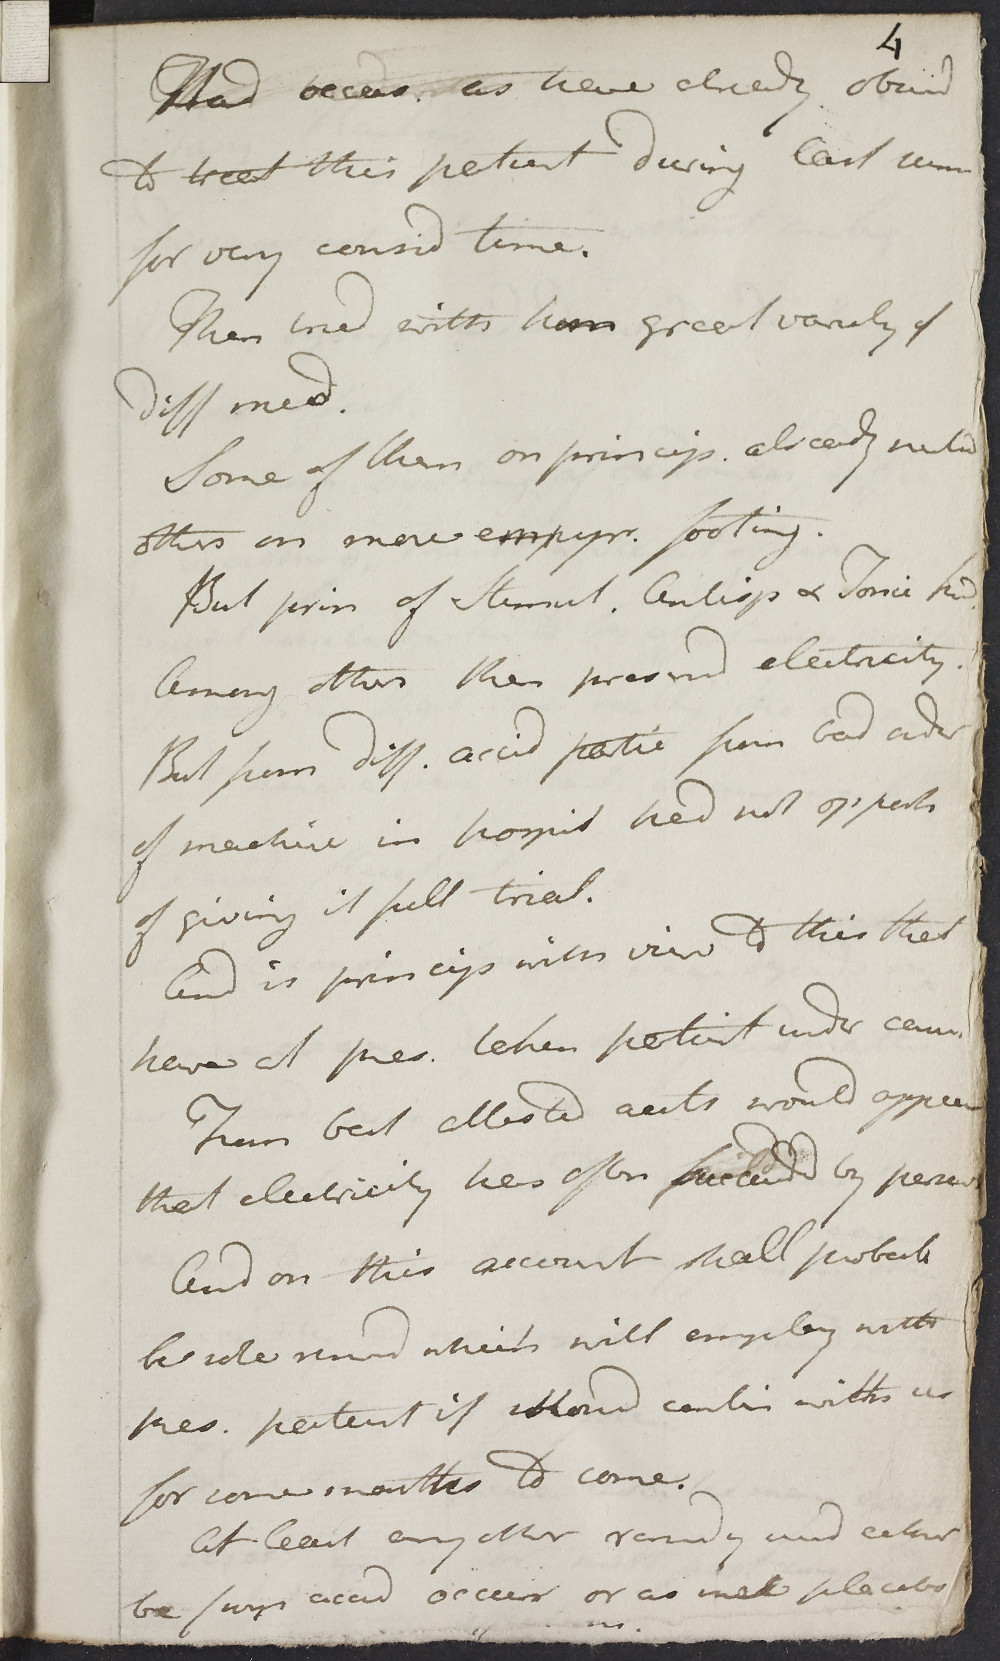 4
Had occas. as have already observd
to treat this patient during last summ
for very consid time.
Then tried with him great variety of
diff med.
Some of them on princip. already
others on mere empyr. footing.
But prin of Stimul. Antisp & Tonic kind.
Among others then prescrivd electricity.
But from diff. accid partic from bad order
of machine in hospit had not opport
of giving it full trial.
And is princip with view to this that
have at pres. taken patient under
From best attested accts would appear
that electricity has often succeeded by
And on this account shall probab
be sole remed which will employ with
pres. patient if should contin with us
for some months to come.
At least any other remedy will either
be from accid occurr or as mere placebo